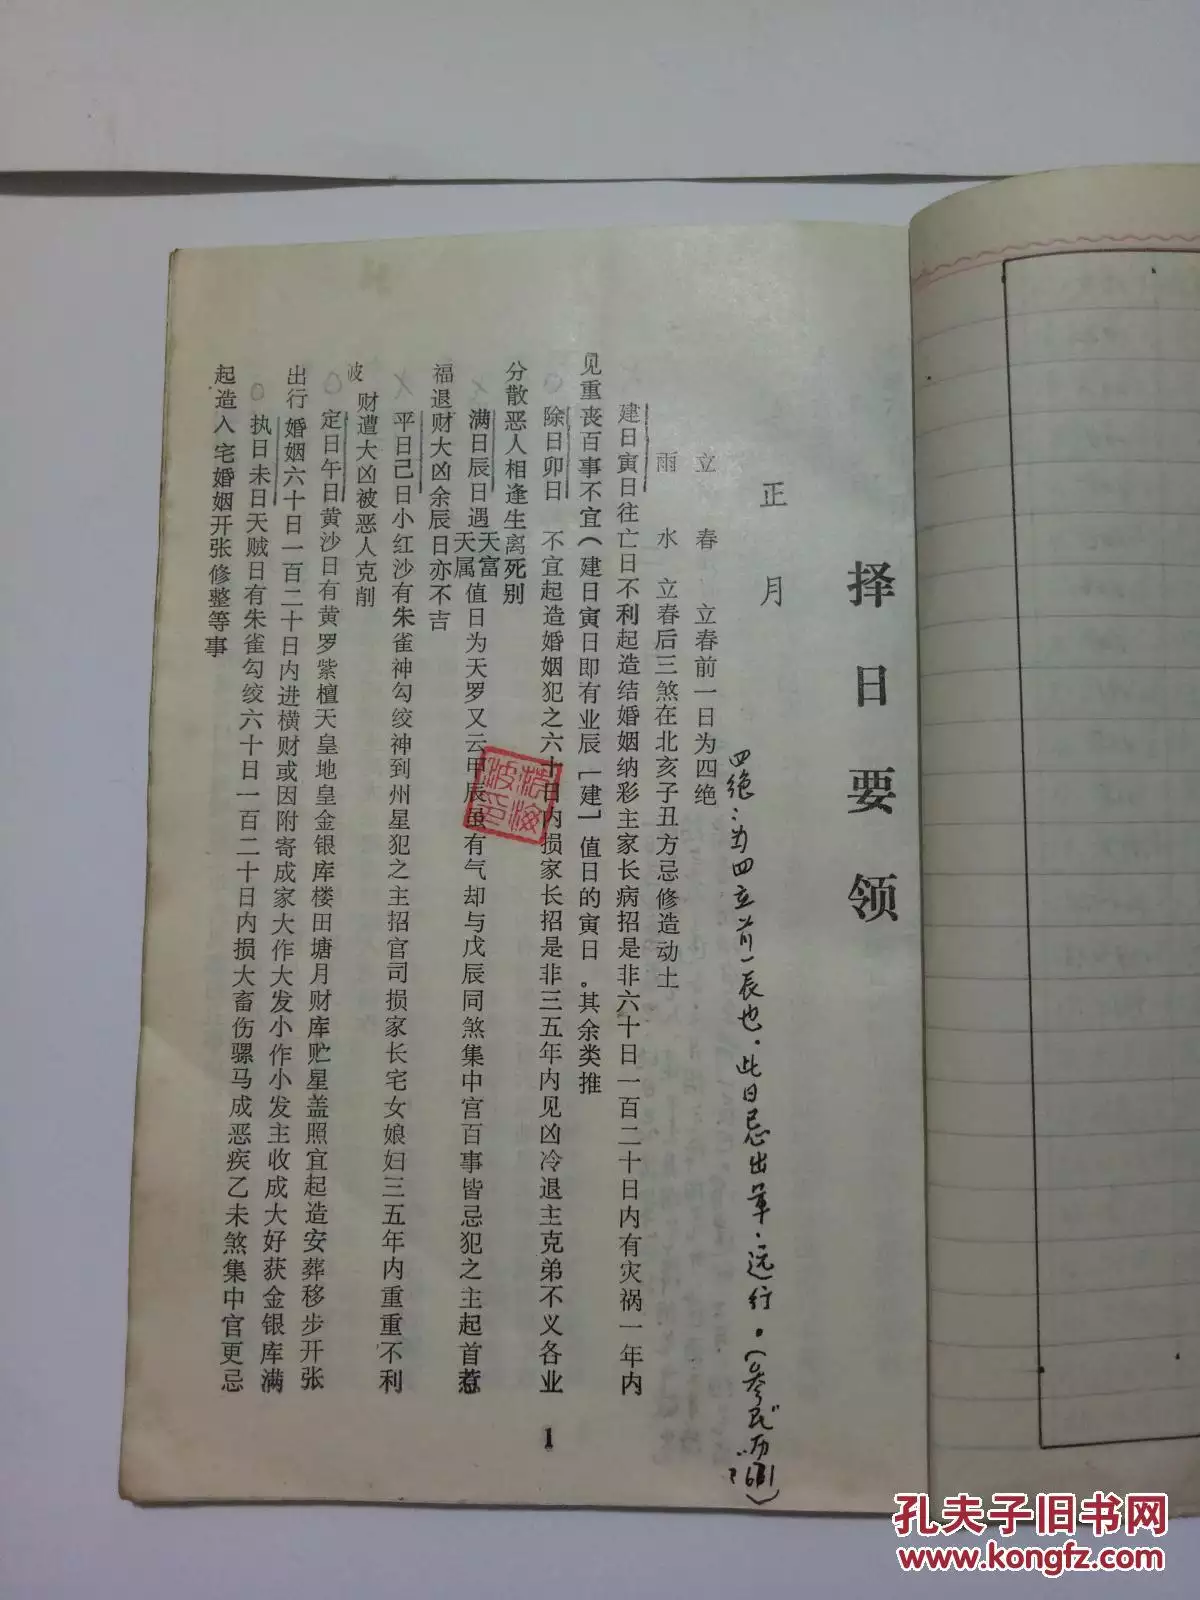 择日要领
正月
四绝：为四立前一辰也．此日忌出军．远行．（参
立春 立春前一日为四绝
雨水 立春后三煞在北亥子丑方忌修造动土
建日寅日往亡日不利起造结婚姻纳彩主家长病招是非六十日一百二十日内有灾祸一年内
见重丧百事不宜（建日寅日即有业辰［建］值日的寅日．其余类推
除日卯日 不宜起造婚姻犯之六十日内损家长招是非三五年内见凶冷退主克弟不义各业
分散恶人相逢生离死别
满日辰日遇天富天属值日为天罗又云甲辰虽有气却与戊辰同煞集中宫百事皆忌犯之主起首惹
福退财大凶余辰日亦不吉
平日己日小红沙有朱雀神勾绞神到州星犯之主招官司损家长宅女娘妇三五年内重重不利
被财遭大凶被恶人克削
定日午日黄沙日有黄罗紫檀天皇地皇金银库楼田塘月财库贮星盖照宜起造安葬移步开张
出行婚姻六十日一百二十日内进横财或因附寄成家大作大发小作小发主收成大好获金银库满
执日未日天贼日有朱雀勾绞六十日一百二十日内损大畜伤骡马成恶疾乙未煞集中官更忌
起造入宅婚姻开张修整等事
1
孔夫子旧书网
www.kongfz.com